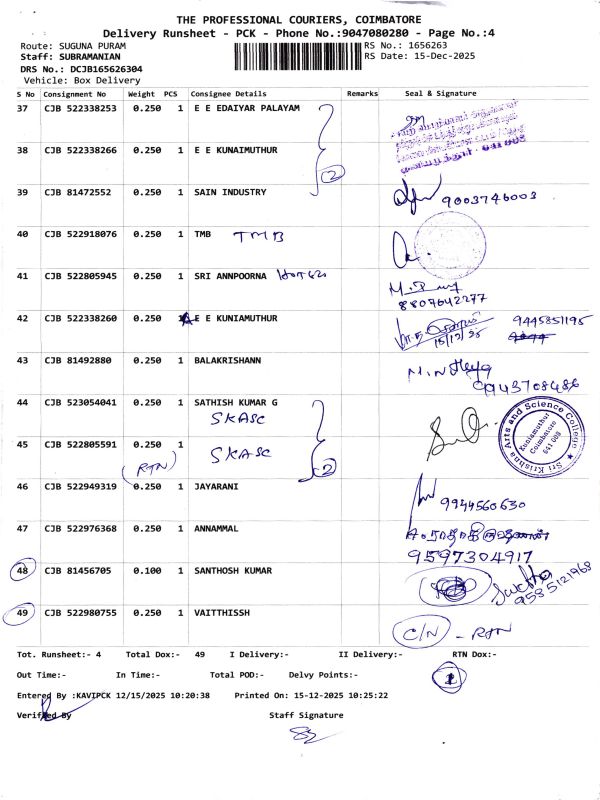 THE PROFESSIONAL COURIERS, COIMBATORE
Delivery Runsheet - PCK - Phone No.:9047080280 - Page No.:4
Route: SUGUNA PURAM
RS No.: 1656263
Staff: SUBRAMANIAN
RS Date: 15-Dec-2025
DRS No.: DCJB165626304
Vehicle: Box Delivery
S No Consignment No Weight PCS Consignee Details Remarks Seal & Signature
37 CJB 522338253 0.250 1 E E EDAIYAR PALAYAM
38 CJB 522338266 0.250 1 E E KUNAIMUTHUR
2
39 CJB 81472552 0.250 1 SAIN INDUSTRY 9003746003
40 CJB 522918076 0.250 1 TMB TMB
41 CJB 522805945 0.250 1 SRI ANNPOORNA
8807642277
42 CJB 522338260 0.250 E E KUNIAMUTHUR 9445851195
15/12/25
43 CJB 81492880 0.250 1 BALAKRISHANN
9943708486
44 CJB 523054041 0.250 1 SATHISH KUMAR G
SKASC
Sri Krishna Arts and Science College
Kuniamuthur
Coimbatore
641 008
45 CJB 522805591 0.250 1
SKASC
(RTN)
2
46 CJB 522949319 0.250 1 JAYARANI 9944560630
47 CJB 522976368 0.250 1 ANNAMMAL
9597304917
48 CJB 81456705 0.100 1 SANTHOSH KUMAR
9585121968
49 CJB 522980755 0.250 1 VAITTHISSH
C/N - RTN
Tot. Runsheet:- 4 Total Dox:- 49 I Delivery:- II Delivery:- RTN Dox:-
Out Time:- In Time:- Total POD:- Delvy Points:-
1
Entered By :KAVIPCK 12/15/2025 10:20:38 Printed On: 15-12-2025 10:25:22
Verified By Staff Signature